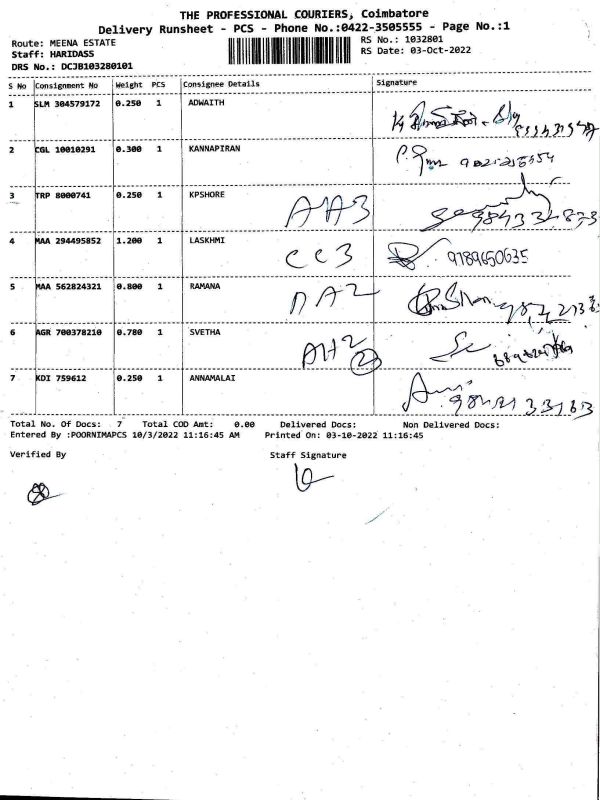 THE PROFESSIONAL COURIERS, Coimbatore
Delivery Runsheet - PCS - Phone No.:0422-3505555 - Page No.:1
Route: MEENA ESTATE RS No.: 1032801
Staff: HARIDASS RS Date: 03-Oct-2022
DRS No.: DCJB103280101
S No Consignment No Weight PCS Consignee Details Signature
1 SLM 304579172 0.250 1 ADWAITH
2 CGL 10010291 0.300 1 KANNAPIRAN
3 TRP 8000741 0.250 1 KPSHORE
4 MAA 294495852 1.200 1 LASKHMI CC3 9789650635
5 MAA 562824321 0.800 1 RAMANA DA2
6 AGR 700378210 0.780 1 SVETHA AH2 2
7 KDI 759612 0.250 1 ANNAMALAI
Total No. Of Docs: 7 Total COD Amt: 0.00 Delivered Docs: Non Delivered Docs:
Entered By :POORNIMAPCS 10/3/2022 11:16:45 AM Printed On: 03-10-2022 11:16:45
Verified By Staff Signature